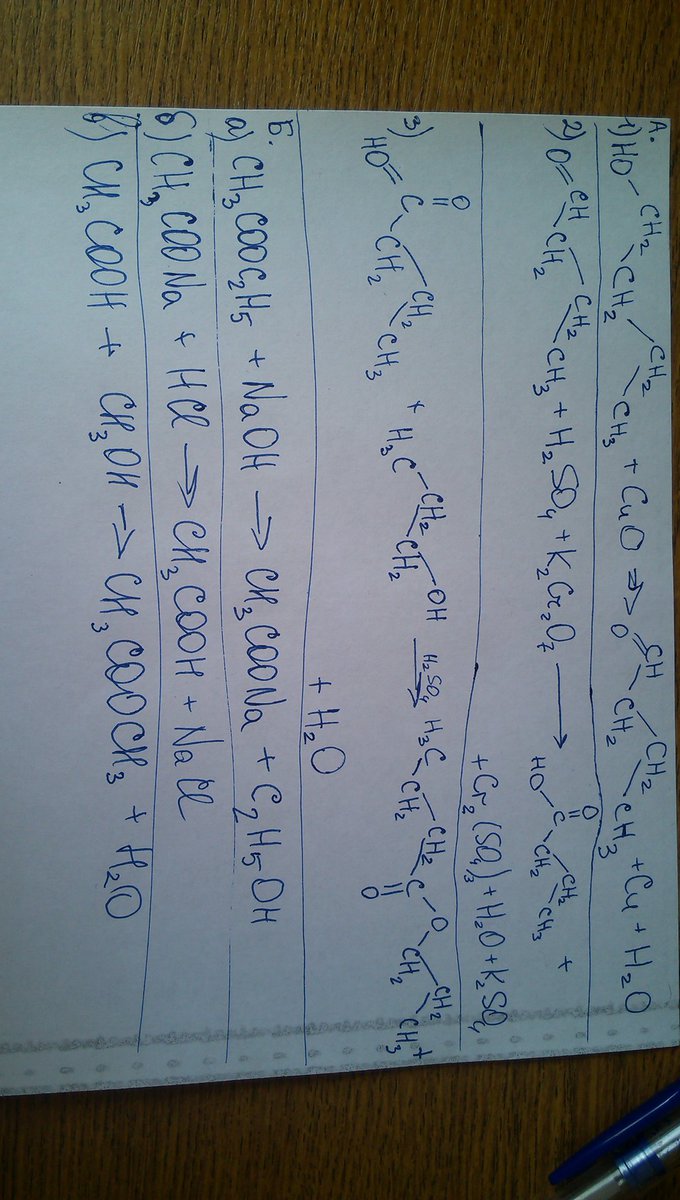 А.
1) HO-CH2-CH2-CH2-CH3 + CuO → O=CH-CH2-CH2-CH3 + Cu + H2O
2) O=CH-CH2-CH2-CH3 + H2SO4 + K2Cr2O7 → HO-C(=O)-CH2-CH2-CH3 +
+ Cr2(SO4)3 + H2O + K2SO4
3) HO=C(=O)-CH2-CH2-CH3 + H3C-CH2-CH2-OH H2SO4→ H3C-CH2-CH2-C(=O)-O-CH2-CH2-CH3 +
+ H2O
Б.
а) CH3COOC2H5 + NaOH → CH3COONa + C2H5OH
б) CH3COONa + HCl → CH3COOH + NaCl
в) CH3COOH + CH3OH → CH3COOCH3 + H2O